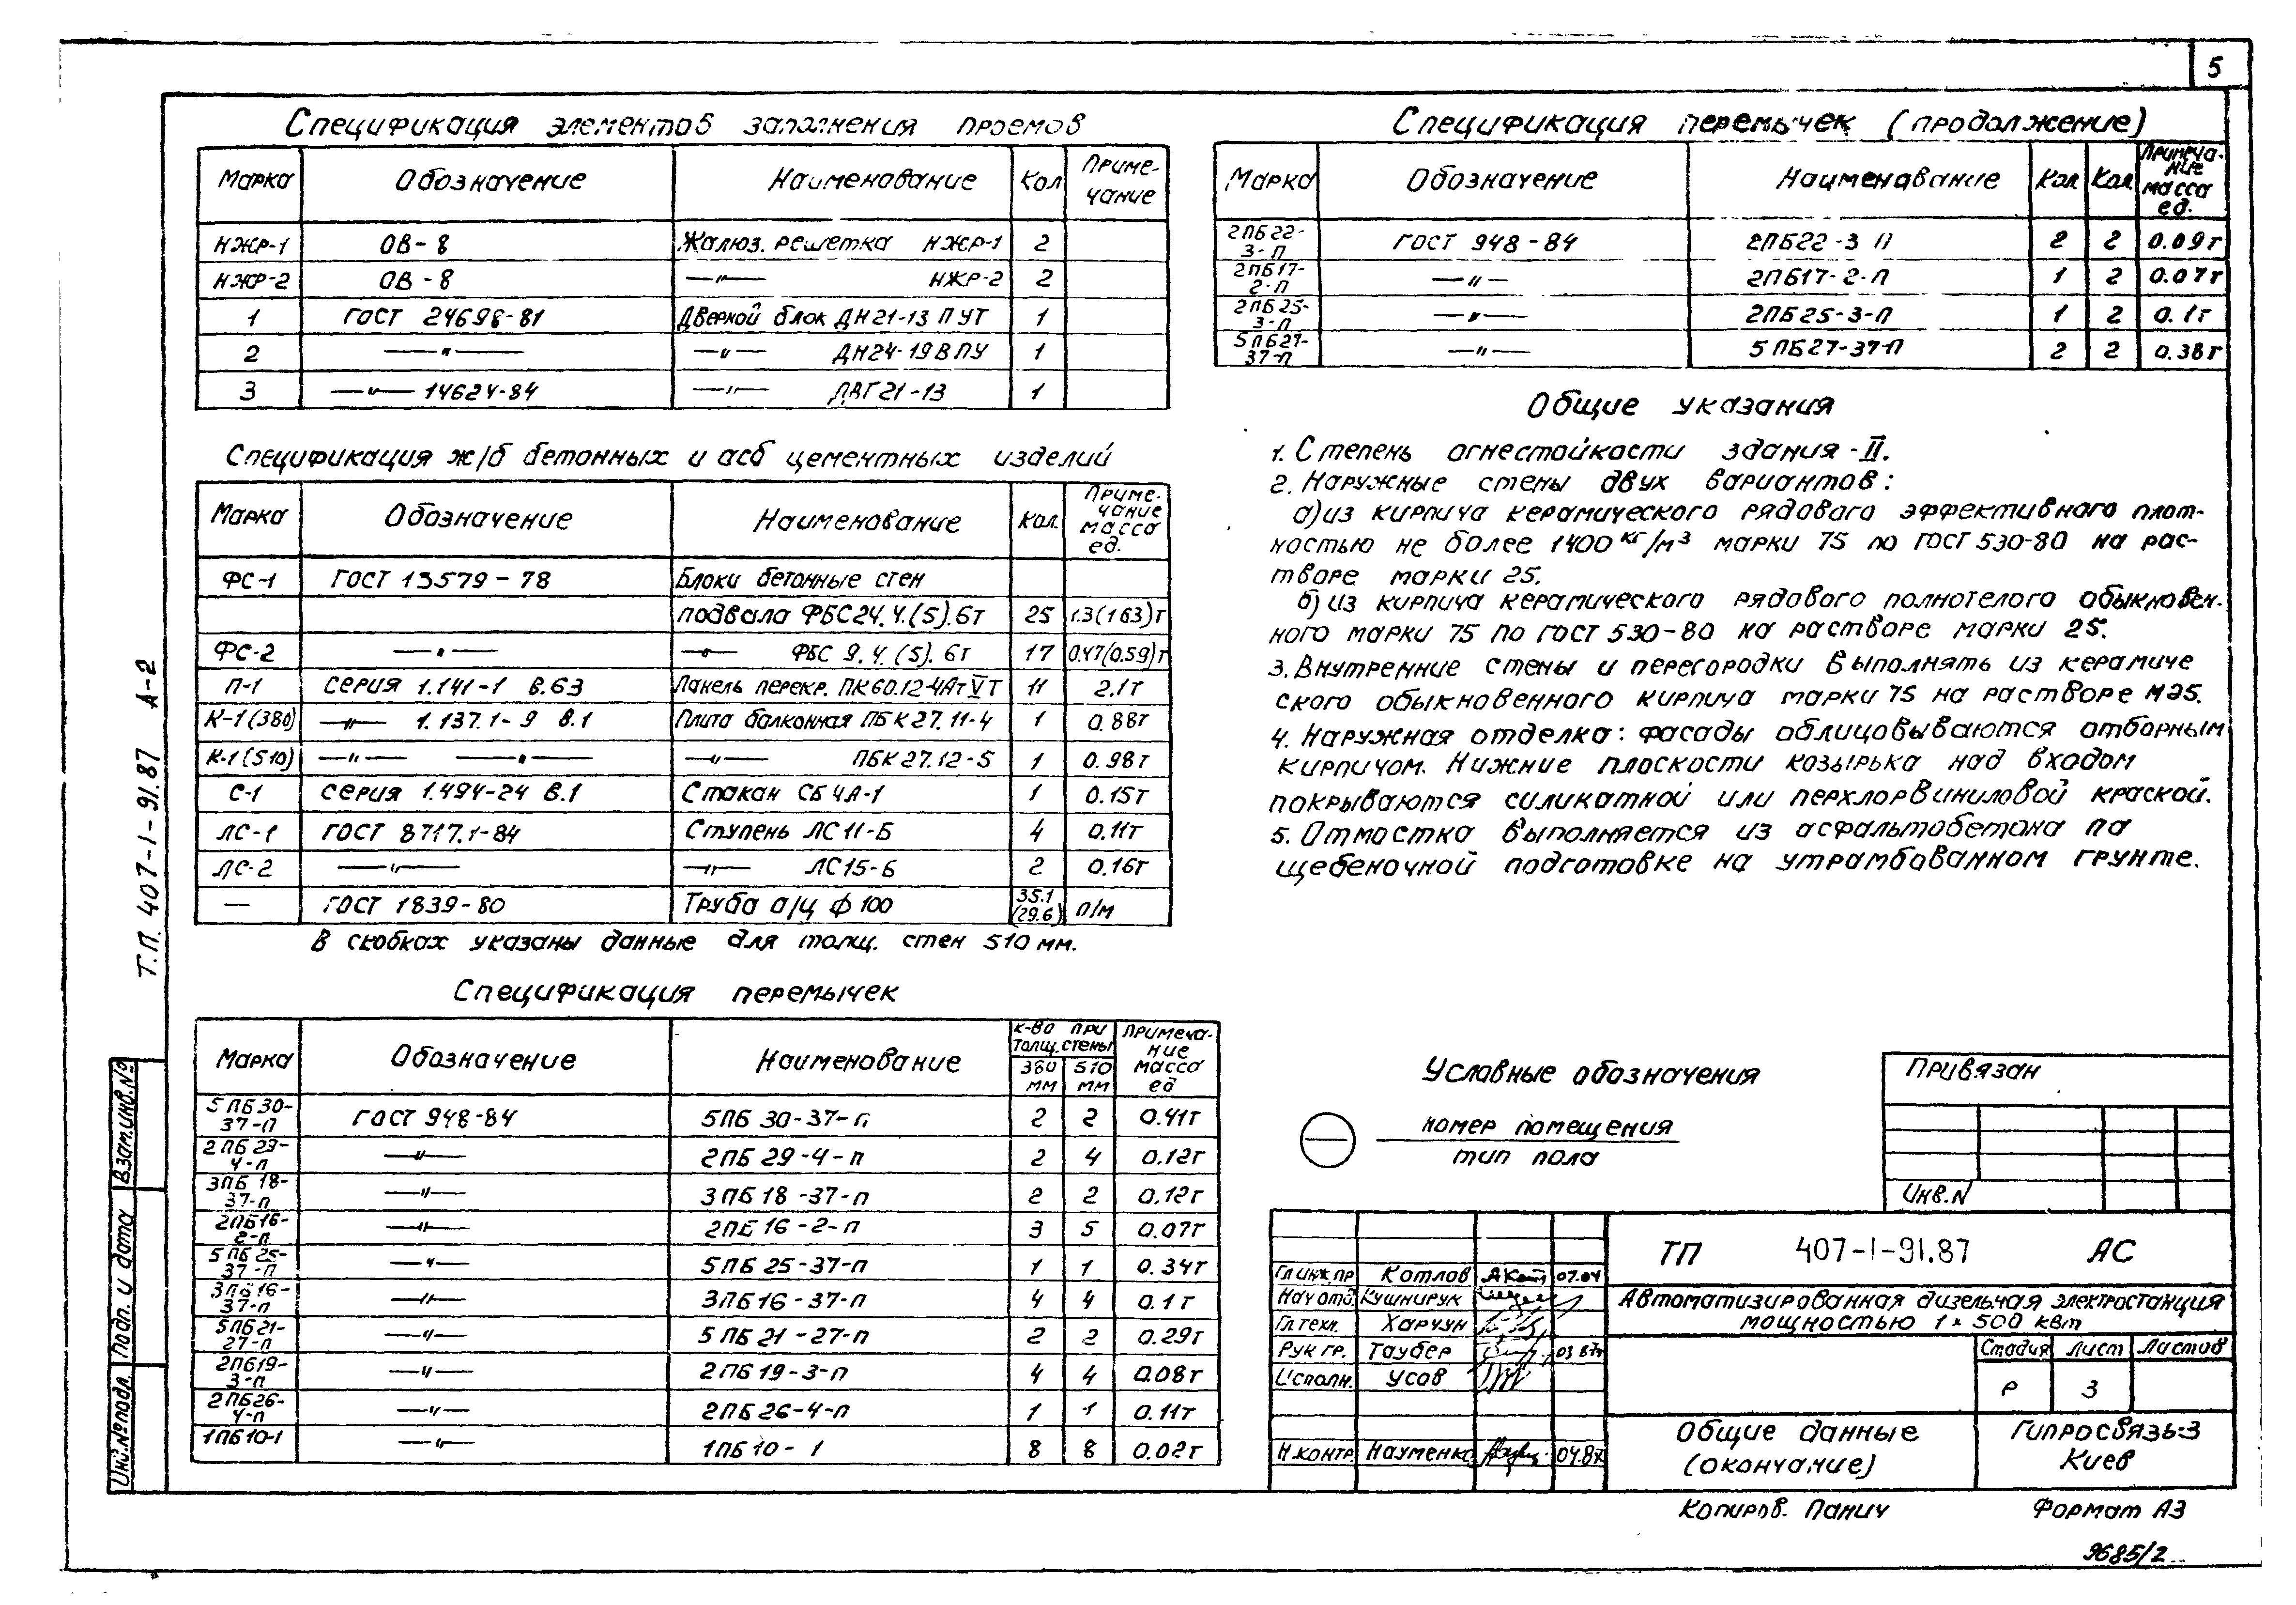 5
Спецификация элементов заполнения проемов
Марка Обозначение Наименование Кол Приме-
чание
НЖР-1 ОВ-8 Жалюз. решетка НЖР-1 2
НЖР-2 ОВ-8 —"— НЖР-2 2
1 ГОСТ 24698-81 Дверной блок ДН21-13 ПУТ 1
2 —"— —"— ДН24-19ВПУ 1
3 —"— 14624-84 —"— ДВГ21-13 1
Спецификация ж/б бетонных и асб цементных изделий
Марка Обозначение Наименование Кол. Приме-
чание
масса
ед.
ФС-1 ГОСТ 13579-78 Блоки бетонные стен
подвала ФБС24.4.(5).6т 25 1.3(1.63)т
ФС-2 —"— —"— ФБС 9.4.(5).6т 17 0.47(0.59)т
П-1 серия 1.141-1 в.63 Панель перекр. ПК60.12-4АтVТ 11 2.1т
К-1(380) —"— 1.137.1-9 в.1 Плита балконная ПБК27.11-4 1 0.88т
К-1(510) —"— —"— —"— ПБК27.12-5 1 0.98т
С-1 серия 1.494-24 в.1 Стакан СБ4А-1 1 0.15т
ЛС-1 ГОСТ 8717.1-84 Ступень ЛС11-Б 4 0.11т
ЛС-2 —"— —"— ЛС15-Б 2 0.16т
— ГОСТ 1839-80 Труба а/ц ф 100 35.1
(29.6) п/м
В скобках указаны данные для толщ. стен 510 мм.
Спецификация перемычек
Марка Обозначение Наименование к-во при
толщ. стены
380
мм 510
мм Примеча-
ние
масса
ед
5ПБ30-
37-п ГОСТ 948-84 5ПБ 30-37-п 2 2 0.41т
2ПБ29-
4-п —"— 2ПБ 29-4-п 2 4 0.12т
3ПБ 18-
37-п —"— 3ПБ18-37-п 2 2 0.12т
2ПБ16-
2-п —"— 2ПБ 16-2-п 3 5 0.07т
5ПБ25-
37-п —"— 5ПБ 25-37-п 1 1 0.34т
3ПБ16-
37-п —"— 3ПБ16-37-п 4 4 0.1т
5ПБ21-
27-п —"— 5ПБ 21-27-п 2 2 0.29т
2ПБ19-
3-п —"— 2ПБ19-3-п 4 4 0.08т
2ПБ26-
4-п —"— 2ПБ26-4-п 1 1 0.11т
1ПБ10-1 —"— 1ПБ10-1 8 8 0.02т
Спецификация перемычек (продолжение)
Марка Обозначение Наименавание Кол Кол Примеча-
ние
масса
ед.
2ПБ22-
3-п ГОСТ 948-84 2ПБ22-3 п 2 2 0.09т
2ПБ17-
2-п —"— 2ПБ17-2-п 1 2 0.07т
2ПБ25-
3-п —"— 2ПБ25-3-п 1 2 0.1т
5ПБ27-
37-п —"— 5ПБ27-37-п 2 2 0.38т
Общие указания
1. Степень огнестойкости здания-II.
2. Наружные стены двух вариантов:
а) из кирпича керамического рядового эффективного плот-
ностью не более 1400 кг/м³ марки 75 по ГОСТ 530-80 на рас-
творе марки 25.
б) из кирпича керамического рядового полнотелого обыкновен-
ного марки 75 по ГОСТ 530-80 на растворе марки 25.
3. Внутренние стены и перегородки выполнять из керамиче
ского обыкновенного кирпича марки 75 на растворе М25.
4. Наружная отделка: фасады облицовываются отборным
кирпичом. Нижние плоскости козырька над входом
покрываются силикатной или перхлорвиниловой краской.
5. Отмостка выполняется из асфальтобетона по
щебеночной подготовке на утрамбованном грунте.
Условные обозначения
номер помещения
тип пола
Привязан
Инв.N
ТП 407-1-91.87 АС
Гл инж.пр Котлов 07.04
Нач отд. Кушнирук
Гл техн. Харчун
Рук гр. Таубер
Исполн. Усов
Н.контр. Науменко 04.87
Автоматизированная дизельная электростанция
мощностью 1×500 кВт
Стадия Лист Листов
Р 3
Общие данные
(окончание)
Гипросвязь-3
Киев
Копиров. Панич Формат А3
9685/2
Т.П. 407-1-91.87 А-2
Взам.инв.№
Подп. и дата
Инв.№ подл.